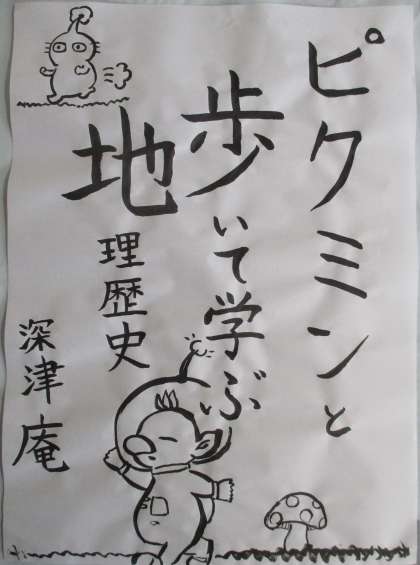 ピクミンと
歩いて学ぶ
地理歴史
深津庵